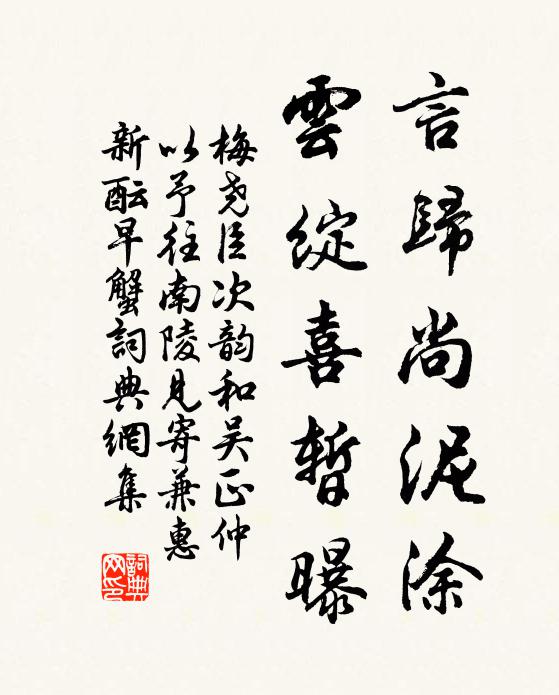 言歸尚泥涂
雲綻喜暫曝
梅尧臣次韵和吴正仲
以予往南陵見寄兼惠
新酝早蟹詞典網集
詞典网印